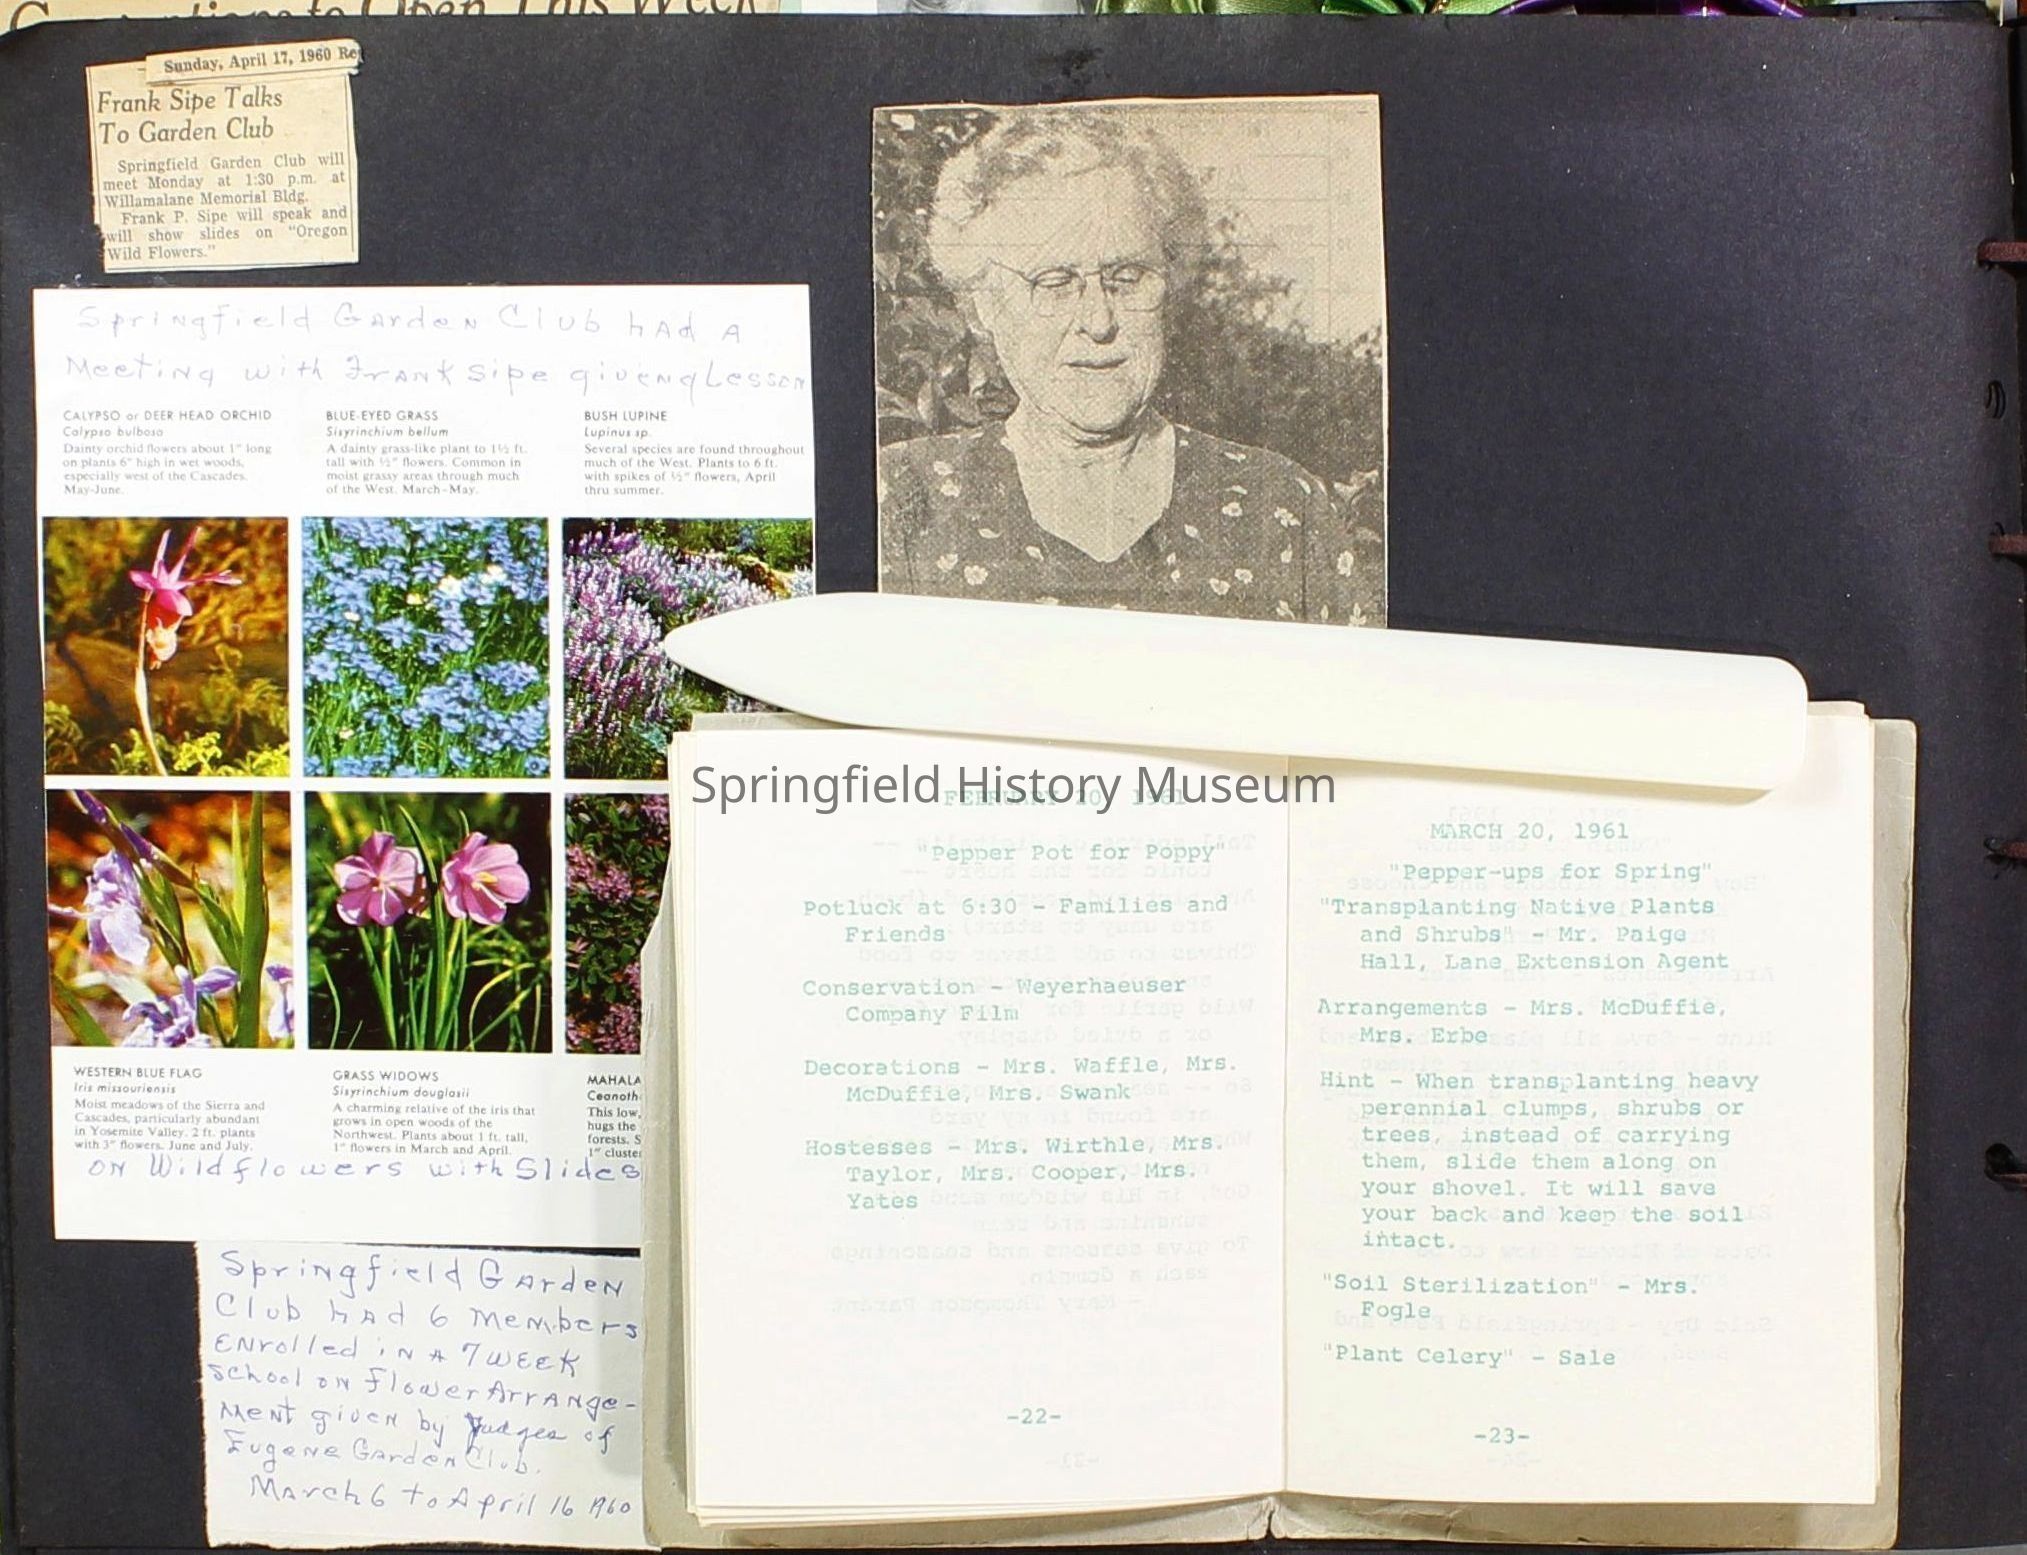 to Open This Week
Sunday, April 17, 1960
Frank Sipe Talks
To Garden Club
Springfield Garden Club will
meet Monday at 1:30 p.m. at
Willamalane Memorial Bldg.
Frank P. Sipe will speak and
will show slides on "Oregon
Wild Flowers."
Springfield Garden Club had a
Meeting with Frank Sipe giveng Lesson
CALYPSO or DEER HEAD ORCHID
Calypso bulbosa
Dainty orchid flowers about 1" long
on plants 6" high in wet woods,
especially west of the Cascades.
May-June.
BLUE-EYED GRASS
Sisyrinchium bellum
A dainty grass-like plant to 1½ ft.
tall with ½" flowers. Common in
moist grassy areas through much
of the West. March-May.
BUSH LUPINE
Lupinus sp.
Several species are found throughout
much of the West. Plants to 6 ft.
with spikes of ½" flowers, April
thru summer.
WESTERN BLUE FLAG
Iris missouriensis
Moist meadows of the Sierra and
Cascades, particularly abundant
in Yosemite Valley. 2 ft. plants
with 3" flowers. June and July.
GRASS WIDOWS
Sisyrinchium douglasii
A charming relative of the iris that
grows in open woods of the
Northwest. Plants about 1 ft. tall,
1" flowers in March and April.
MAHALA
Ceanoth
This low,
hugs the
forests. S
1" cluster
on Wildflowers with Slides
Springfield Garden
Club had 6 members
Enrolled in a 7 week
School on Flower Arrange-
ment given by Judges of
Eugene Garden Club.
March 6 to April 16 1960
Springfield History Museum
FEBRUARY 20, 1961
"Pepper Pot for Poppy"
Potluck at 6:30 - Families and
Friends
Conservation - Weyerhaeuser
Company Film
Decorations - Mrs. Waffle, Mrs.
McDuffie, Mrs. Swank
Hostesses - Mrs. Wirthle, Mrs.
Taylor, Mrs. Cooper, Mrs.
Yates
-22-
MARCH 20, 1961
"Pepper-ups for Spring"
"Transplanting Native Plants
and Shrubs" - Mr. Paige
Hall, Lane Extension Agent
Arrangements - Mrs. McDuffie,
Mrs. Erbe
Hint - When transplanting heavy
perennial clumps, shrubs or
trees, instead of carrying
them, slide them along on
your shovel. It will save
your back and keep the soil
intact.
"Soil Sterilization" - Mrs.
Fogle
"Plant Celery" - Sale
-23-